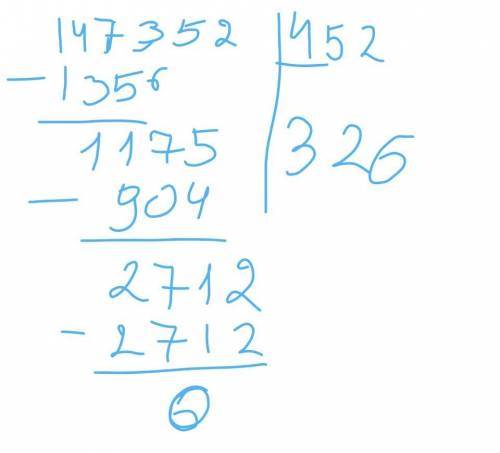 147352 | 452
− 1356 326
1175
− 904
2712
- 2712
0